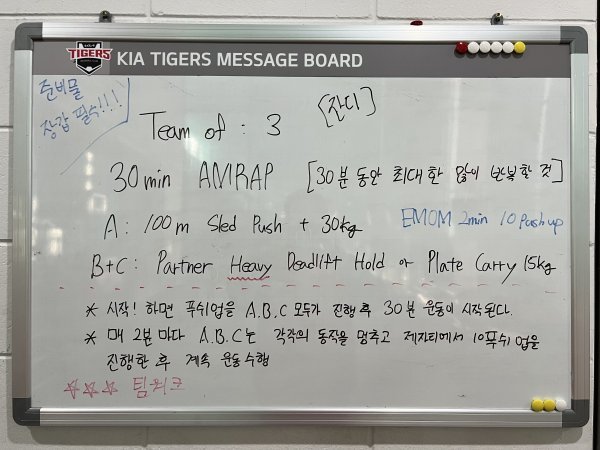 TIGERS KIA TIGERS MESSAGE BOARD
준비물
장갑 필수!!!
[잔디]
Team of : 3
30min AMRAP [30분 동안 최대한 많이 반복할 것]
A : 100m Sled Push + 30kg EMOM 2min 10 Push up
B+C : Partner Heavy Deadlift Hold or Plate Carry 15kg
* 시작! 하면 푸쉬업을 A.B.C 모두가 진행 후 30분 운동이 시작된다.
* 매 2분 마다 A.B.C는 각각의 동작을 멈추고 제자리에서 10푸쉬업을
진행한 후 계속 운동 수행
☆☆☆ 팀워크